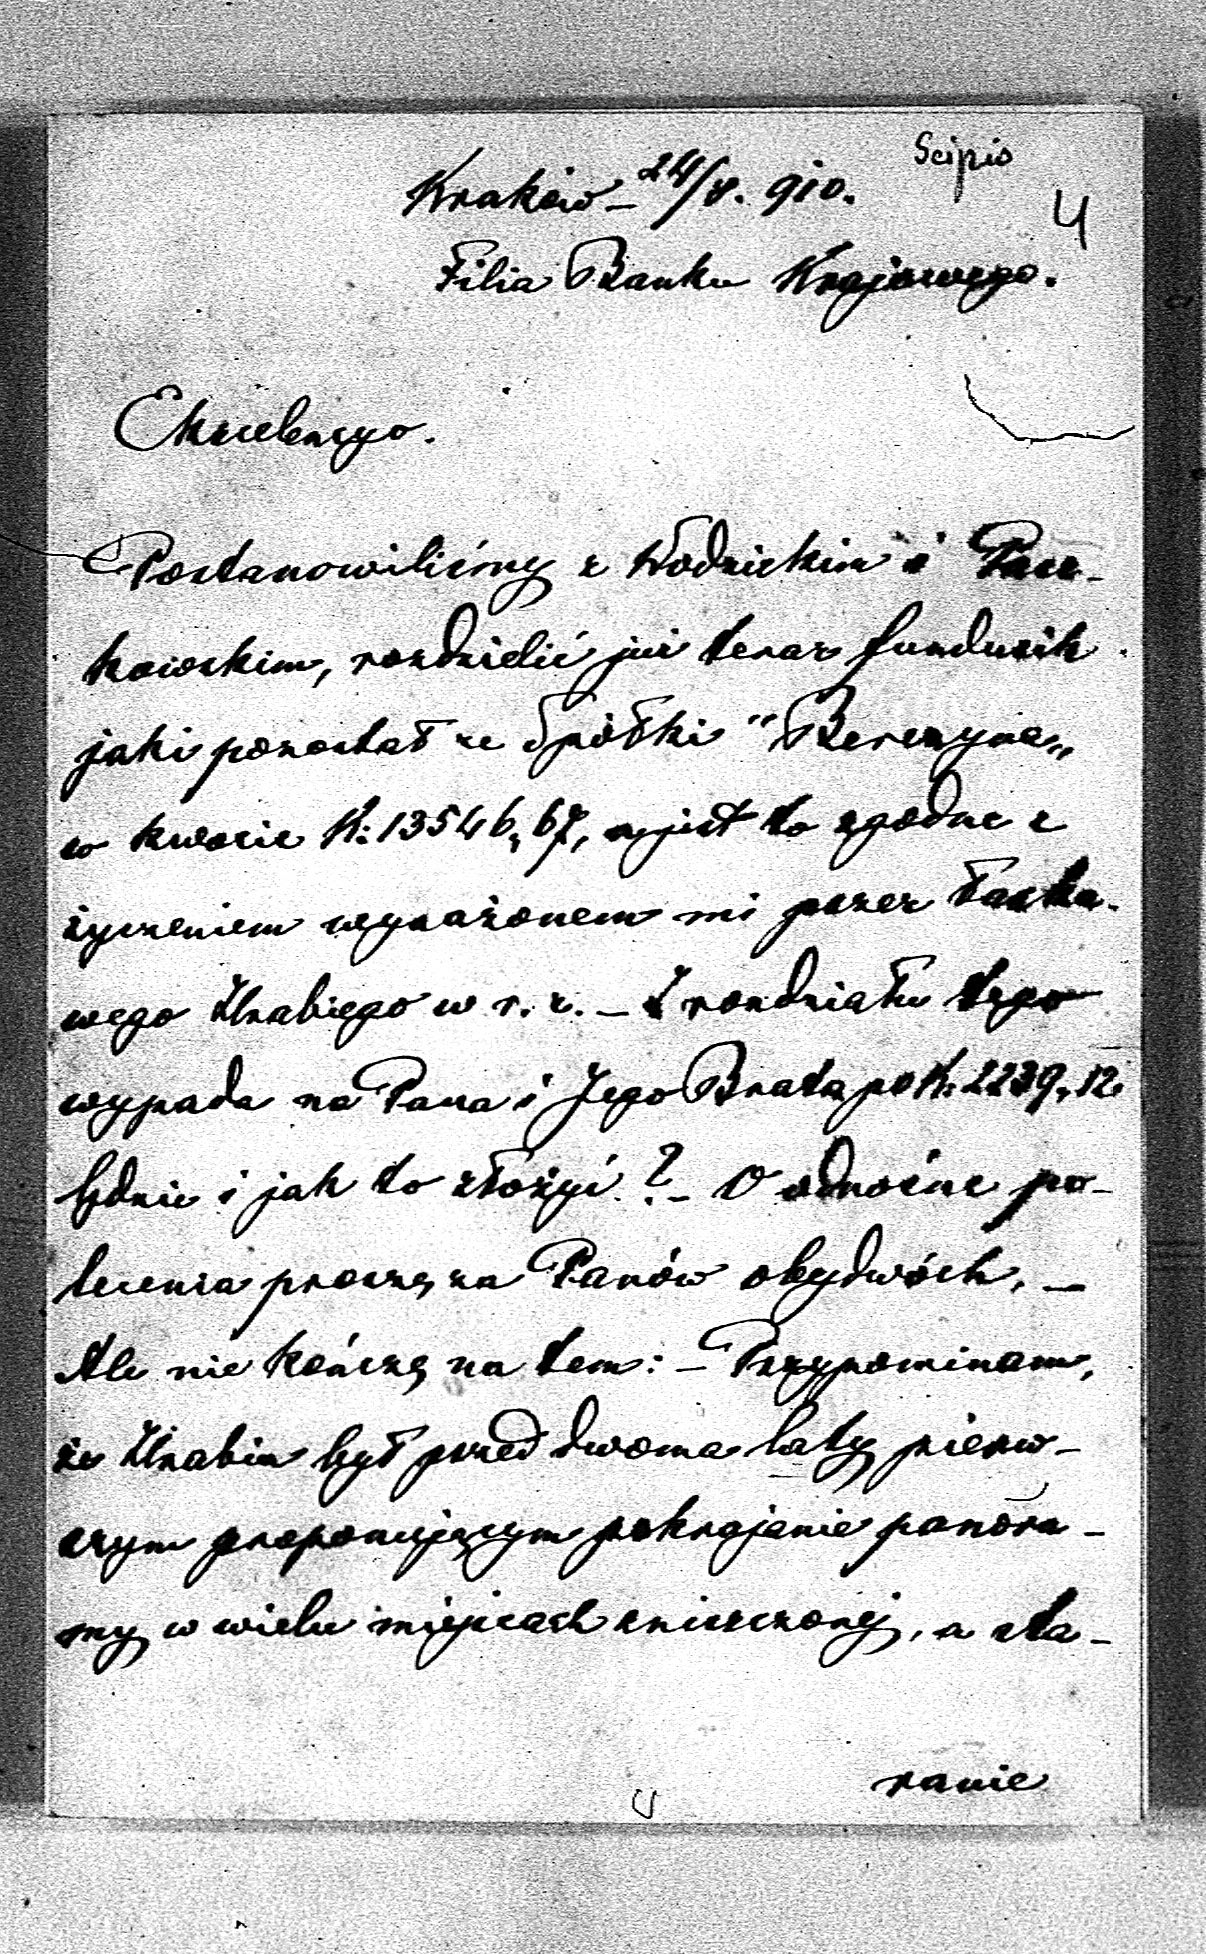 Scipio
Kraków – 24/8. 910.
4
Filia Banku Krajowego.
Ekscelencyo.
Postanowiliśmy z Wodzickim i Pasz-
kowskim, rozdzielić już teraz fundusik
jaki pozostał ze Spółki "Berezyna„
w kwocie K: 13546,67, a jest to zgodne z
życzeniem wyrażonem mi przez Łaska-
wego Hrabiego w r. z. – Z rozdziału tego
wypada na Pana i Jego Brata po K: 2239,12.
Gdzie i jak to złożyć? – O odnośne po-
lecenia proszę za Panów obydwóch. –
Ale nie kończę na tem: – Przypominam,
że Hrabia był przed dwoma laty pierw-
szym proponującym pokrajanie panora-
my w wielu miejscach zniszczonej, a sta-
ranie